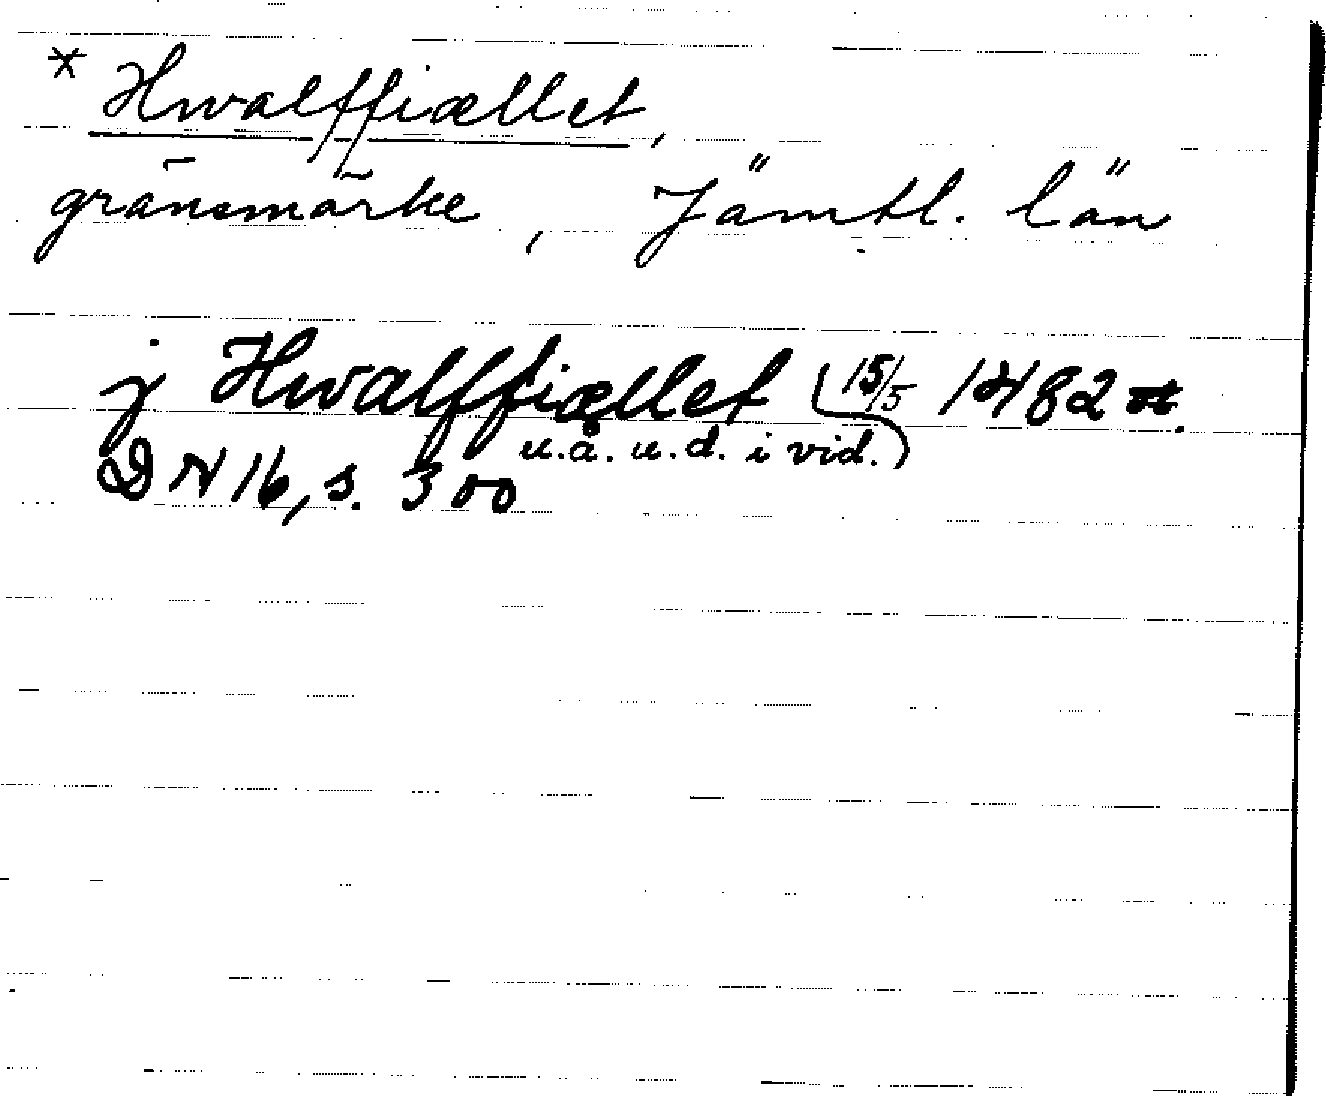 * Hwalffiællet,
gränsmärke, Jämtl. län
j Hwalffiællet (15/5 1482
u.å. u.d. i vid.)
DN 16, s. 300